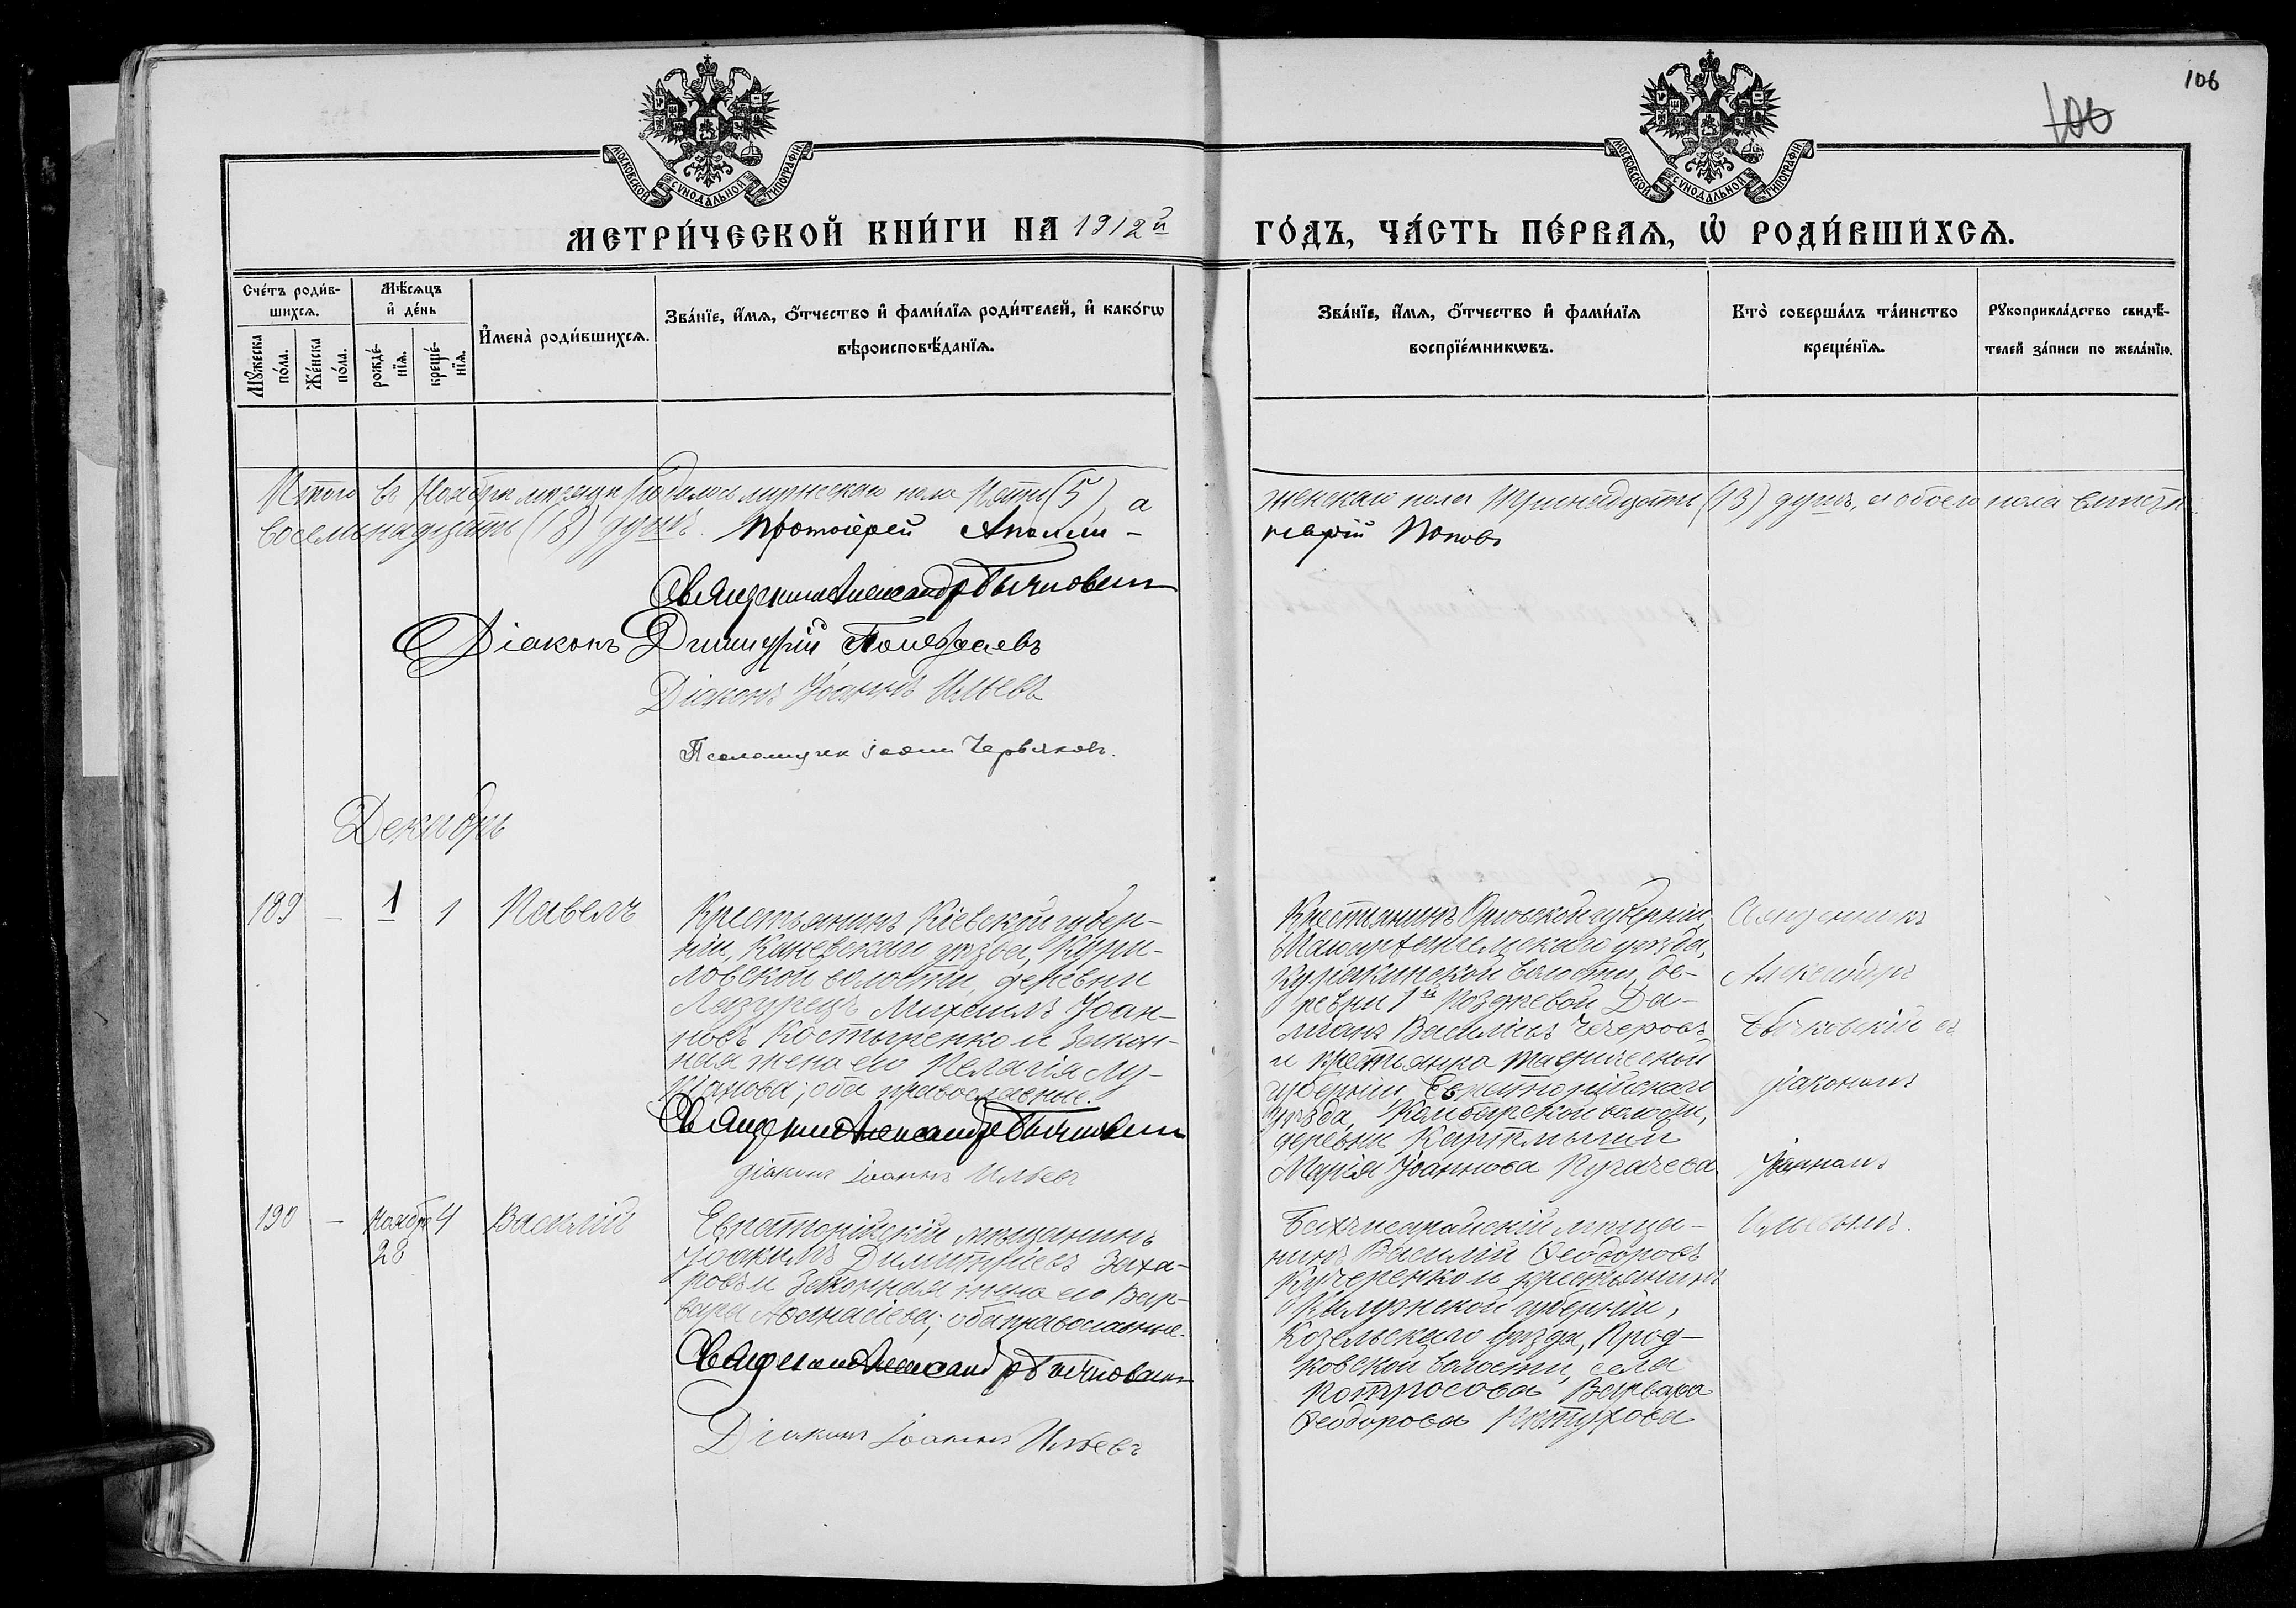 106
106
МОСКОВСКОЙ СѴНОДАЛЬНОЙ ТИПОГРАФІИ
МОСКОВСКОЙ СѴНОДАЛЬНОЙ ТИПОГРАФІИ
МЕТРИ́ЧЕСКОЙ КНИ́ГИ НА 1912й
ГО́ДЪ, ЧА́СТЬ ПЕ́РВАѦ, Ѡ҆ РОДИ́ВШИХСѦ.
Сче́тъ роди́в-
шихсѧ.
Мꙋ́жеска по́ла.
Же́нска по́ла.
Мѣ́сѧцъ
и҆ де́нь
рожде́-
нїѧ.
креще́-
нїѧ.
И҆мена̀ роди́вшихсѧ.
Зва́нїе, и҆́мѧ, ѻ҆́тчество и҆ фами́лїѧ роди́телей, и҆ како́гѡ
вѣроисповѣ́данїѧ.
Зва́нїе, и҆́мѧ, ѻ҆́тчество и҆ фами́лїѧ
воспрїе́мникѡвъ.
Кто̀ соверша́лъ та́инство
креще́нїѧ.
Рꙋкоприкла́дство свидѣ́-
телей за́писи по жела́нїю.
Итого въ Ноябрѣ мѣсяцѣ родилось мужескаго пола Пять (5), а
женскаго пола Тринадцать (13) душъ, а обоего пола вмѣстѣ
восемьнадцать (18) душъ. Протоіерей Аполли-
нарій Поповъ
Священникъ Александръ Бычковскій
Діаконъ Димитрій
Діаконъ Іоаннъ Ильевъ
Псаломщикъ Іоаннъ Червяковъ.
Декабрь
189 - 1 1 Павелъ
Крестьянинъ Кіевской губер-
ніи, Каневскаго уѣзда, Кури-
ловской волости, деревни
Лазурецъ Михаилъ Іоан-
новъ Костыренко и закон-
ная жена его Пелагія Лу-
кіанова; оба православные.
Священникъ Александръ Бычковскій
діаконъ Іоаннъ Ильевъ
Крестьянинъ Орловской губерніи,
Малоархангельскаго уѣзда,
Куракинской волости, де-
ревни 1й Поздѣевой Да-
міанъ Васильевъ
и крестьянка Таврической
губерніи Евпаторійскаго
уѣзда, Камбарской волости,
деревни
Марія Іоаннова Пугачева
Священникъ
Александръ
Бычковскій съ
діакономъ
Іоанномъ
Ильевымъ.
190 - Ноября 4 Василій
28
Евпаторійскій мѣщанинъ
Іоакимъ Димитріевъ Заха-
ровъ и законная жена его Вар-
вара Аѳанасіева; оба православные.
Священникъ Александръ Бычковскій
Діаконъ Іоаннъ Ильевъ
Бахчисарайскій мѣща-
нинъ Василій Ѳеодоровъ
Кучеренко и крестьянка
Калужской губерніи,
Козельскаго уѣзда, Прод-
ковской волости, села
Потросова Варвара
Ѳеодорова Петухова